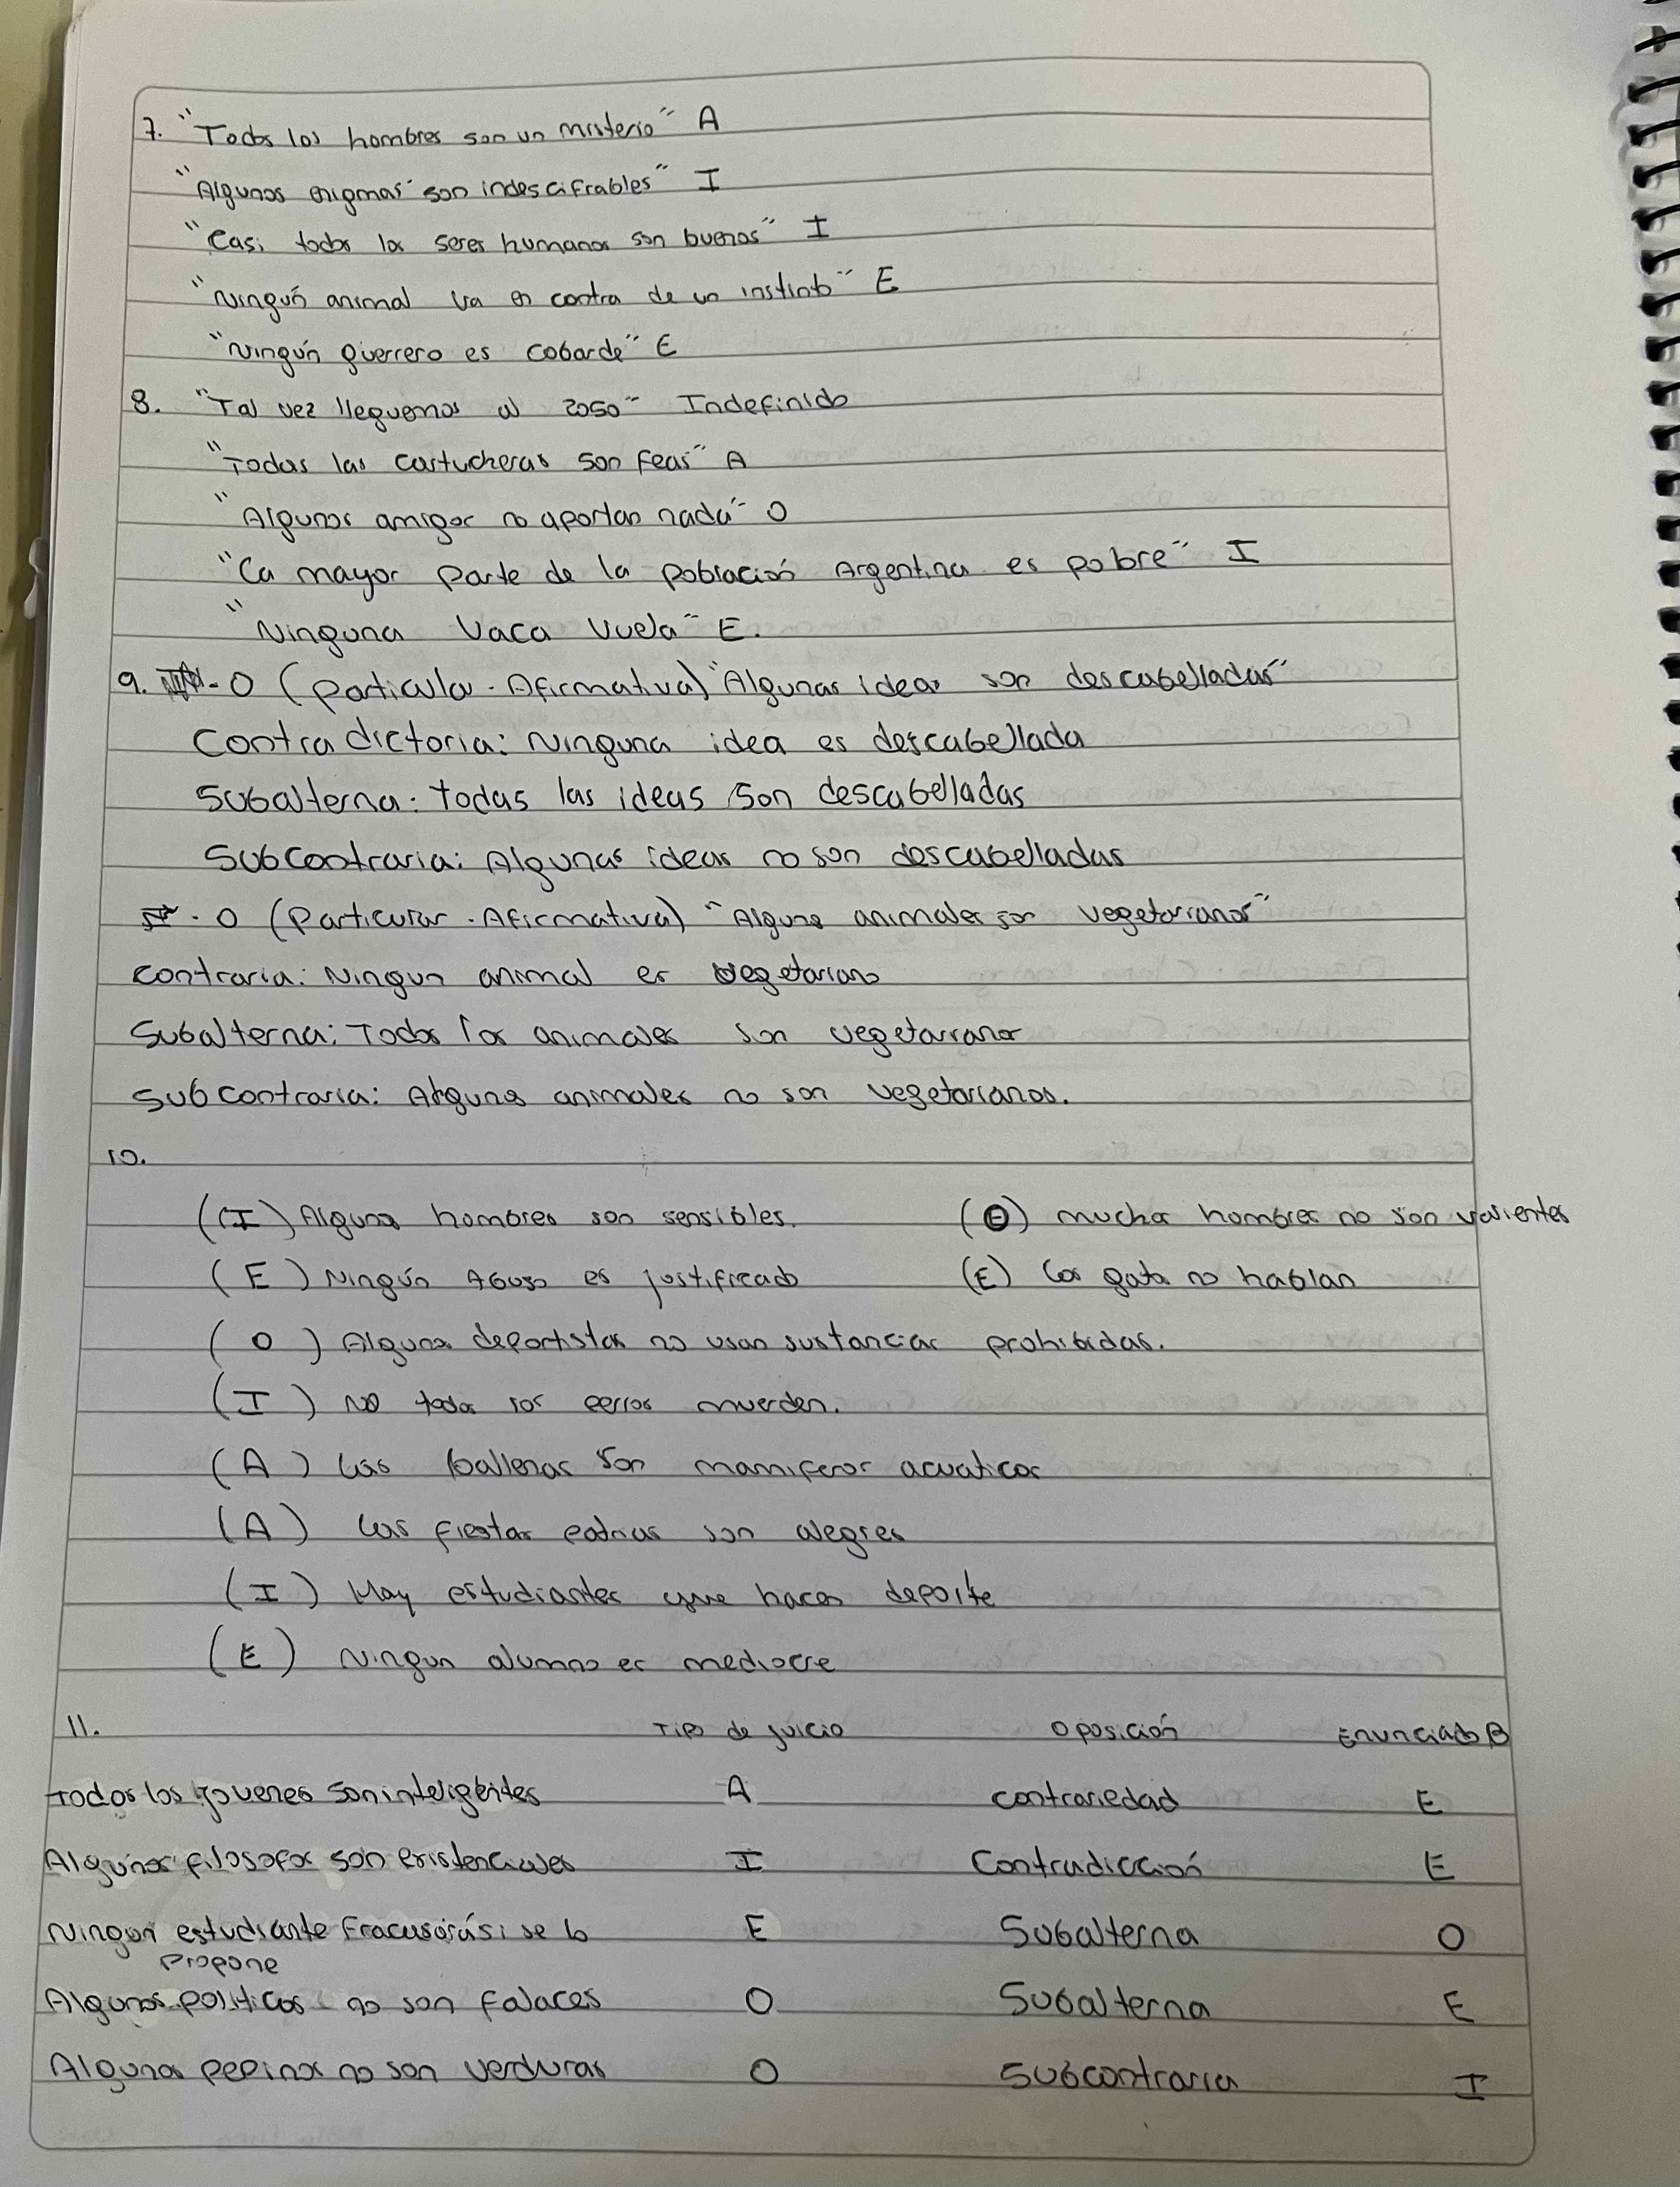 7. "Todos los hombres son un misterio" A
"Algunos enigmas son indescifrables" I
"Casi todos los seres humanos son buenos" I
"Ningún animal va en contra de un instinto" E
"Ningún guerrero es cobarde" E
8. "Tal vez lleguemos al 2050" Indefinido
"Todas las cartucheras son feas" A
"Algunos amigos no aportan nada" O
"La mayor parte de la población Argentina es pobre" I
"Ninguna vaca vuela" E.
9. - O (Particular - Afirmativa) "Algunas ideas son descabelladas"
Contradictoria: Ninguna idea es descabellada
Subalterna: todas las ideas son descabelladas
Subcontraria: Algunas ideas no son descabelladas
- O (Particular - Afirmativa) "Algunos animales son vegetarianos"
contraria: Ningun animal es vegetariano
Subalterna: Todos los animales son vegetarianos
Subcontraria: Algunos animales no son vegetarianos.
10.
(I) Algunos hombres son sensibles. (O) muchos hombres no son valientes
(E) Ningún Abuso es justificado (E) Los gatos no hablan
(O) Algunos deportistas no usan sustancias prohibidas.
(I) No todos los perros muerden.
(A) Las ballenas son mamiferos acuaticos
(A) Las fiestas patrias son alegres
(I) Hay estudiantes que hacen deporte
(E) Ningun alumno es mediocre
11. Tipo de juicio Oposición Enunciado B
Todos los jovenes son inteligentes A contrariedad E
Algunos filosofos son existenciales I Contradicción E
Ningun estudiante fracasará si se lo E Subalterna O
Propone
Algunos politicos no son falaces O Subalterna E
Algunos pepinos no son verduras O Subcontraria I